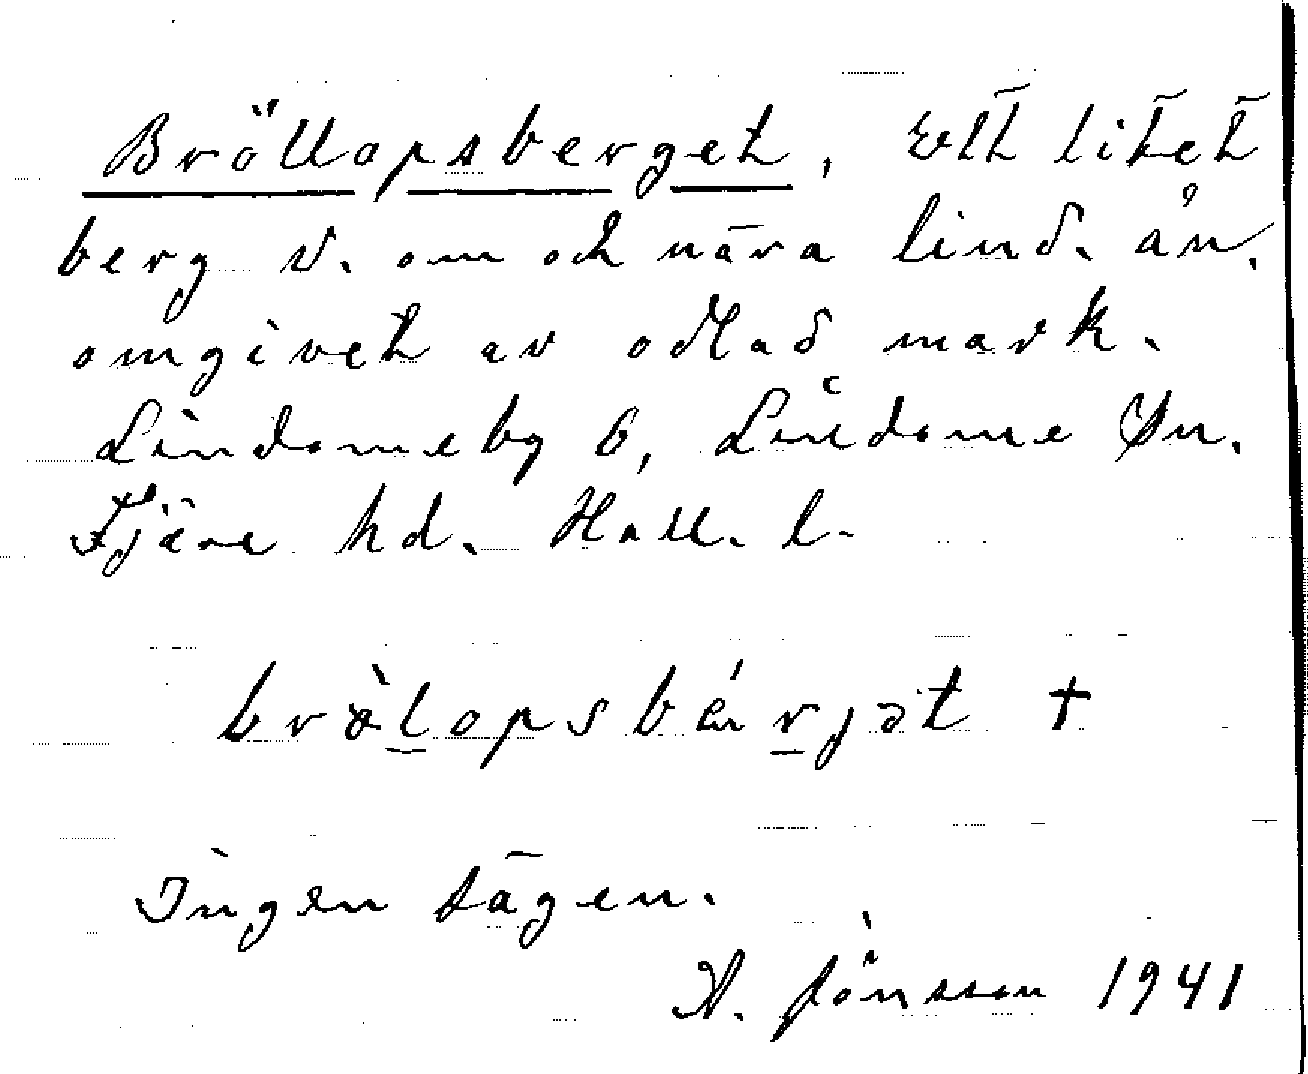 Bröllopsberget, Ett litet
berg V. om och nära lind. ån,
omgivet av odlad mark.
Lindomeby 6, Lindome Sn.
Fjäre hd. Hall. l.
brølopsbærjət †
Ingen sägen.
A. Jönsson 1941